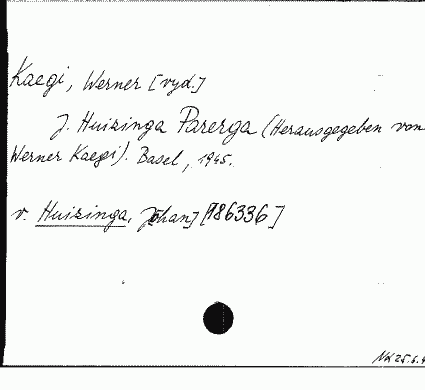 Kaegi, Werner [vyd.]
J. Huizinga Parerga (Herausgegeben von
Werner Kaegi). Basel, 1945.
v. Huizinga, Johan] [186336]
NK 25.6.4